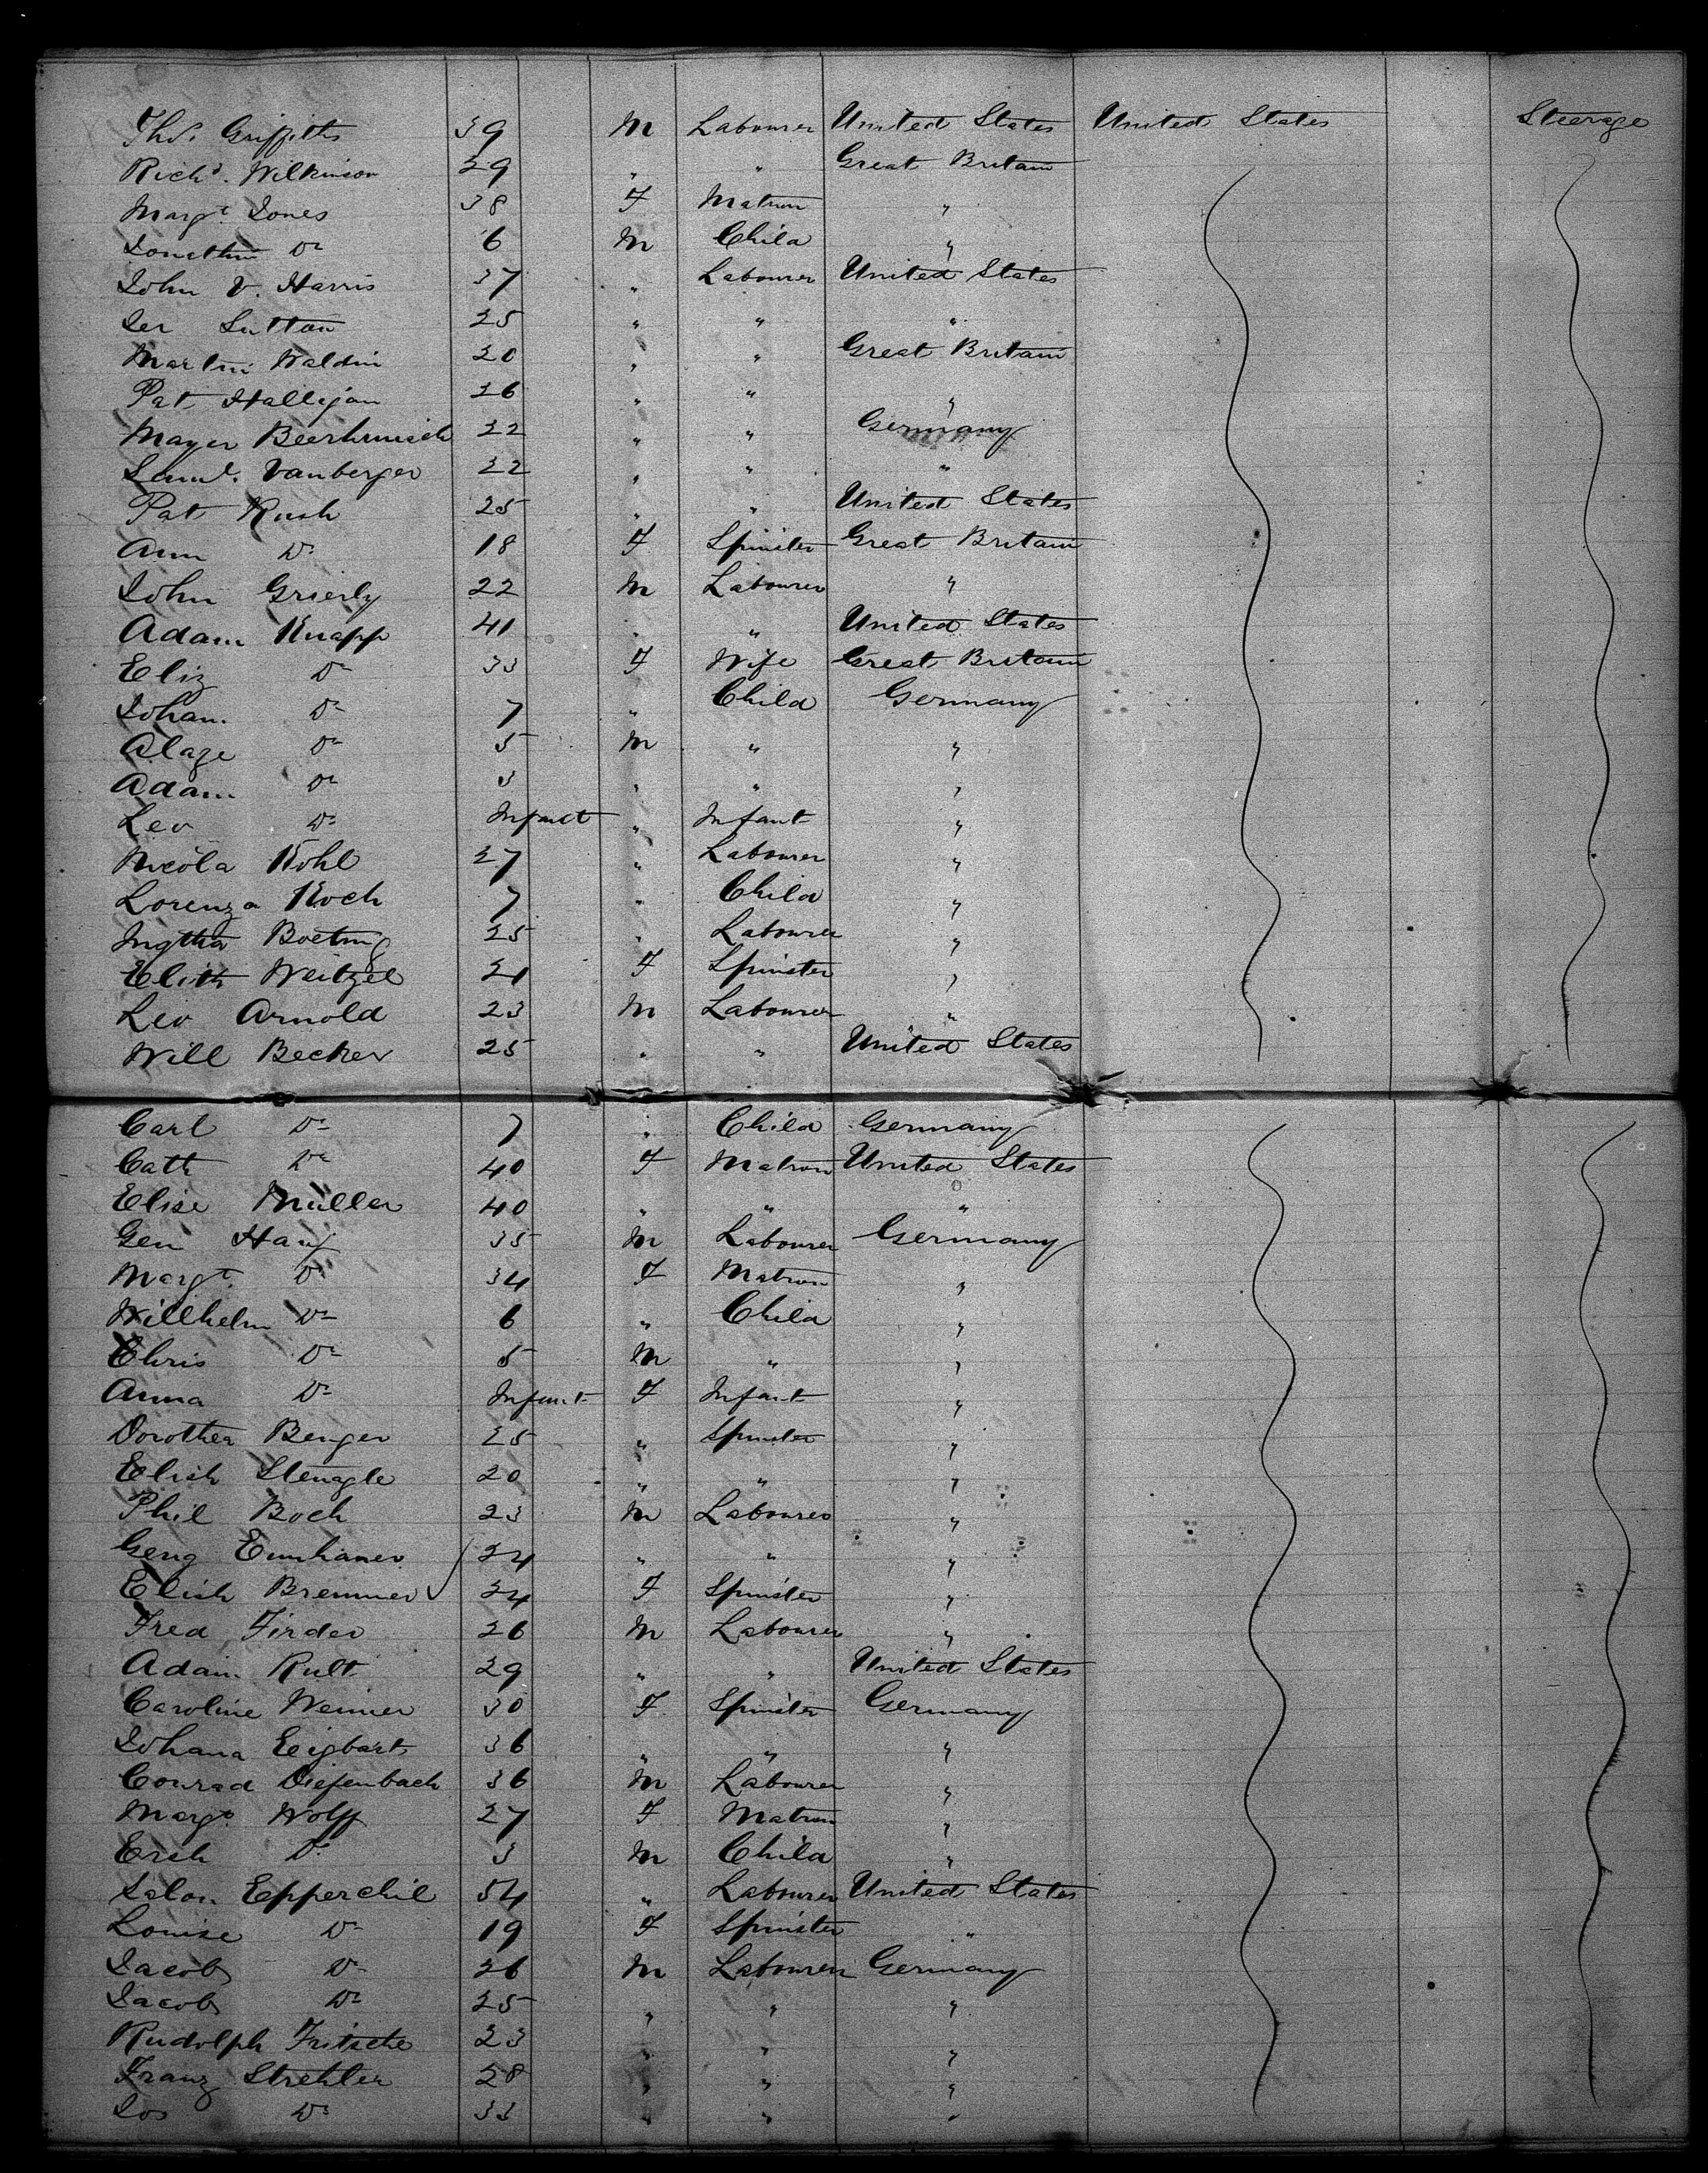 Thos. Griffiths 39 M Labourer United States United States Steerage
Richd. Wilkinson 29 " " Great Britain
Margt. Jones 38 F Matron "
Jonathan Do 6 M Child "
John V. Harris 37 " Labourer United States
Jer Sutton 25 " " "
Martin Waldin 20 " " Great Britain
Pat Halligan 26 " " "
Mayer 22 " " Germany
Saml. Vanberger 22 " " "
Pat Rush 25 " " United States
Ann Do 18 F Spinster Great Britain
John Grierly 22 M Labourer "
Adam Knapp 41 " " United States
Eliz Do 33 F Wife Great Britain
Johan. Do 7 " Child Germany
Do 5 M " "
Adam Do 3 " " "
Leo Do Infant " Infant "
Nicola Kohl 27 " Labourer "
Lorenza Koch 7 " Child "
25 " Labourer "
Elith Weitzel 21 F Spinster "
Leo Arnold 23 M Labourer "
Will Becker 25 " " United States
Carl Do 7 " Child Germany
Cath Do 40 F Matron United States
Elise Muller 40 " " "
Geo 35 M Labourer Germany
Margt. Do 34 F Matron "
Willhelm Do 6 " Child "
Chris Do 5 M " "
Anna Do Infant F Infant "
Dorothea Benger 25 " Spinster "
Elish Stenagle 20 " " "
Phil Boch 23 M Labourer "
24 " " "
Elish Bremmer 24 F Spinster "
Fred Firder 26 M Labourer "
Adam Rult 29 " " United States
Caroline Weimer 30 F Spinster Germany
Johana Eigbart 36 " " "
Conrad Diefenbach 36 M Labourer "
Margt. Wolff 27 F Matron "
Do 3 M Child "
Epperchil 54 " Labourer United States
Louise Do 19 F Spinster "
Jacob Do 26 M Labourer Germany
Jacob Do 25 " " "
Rudolph Fritsche 23 " " "
Franz Strehler 28 " " "
Jos Do 33 " " "